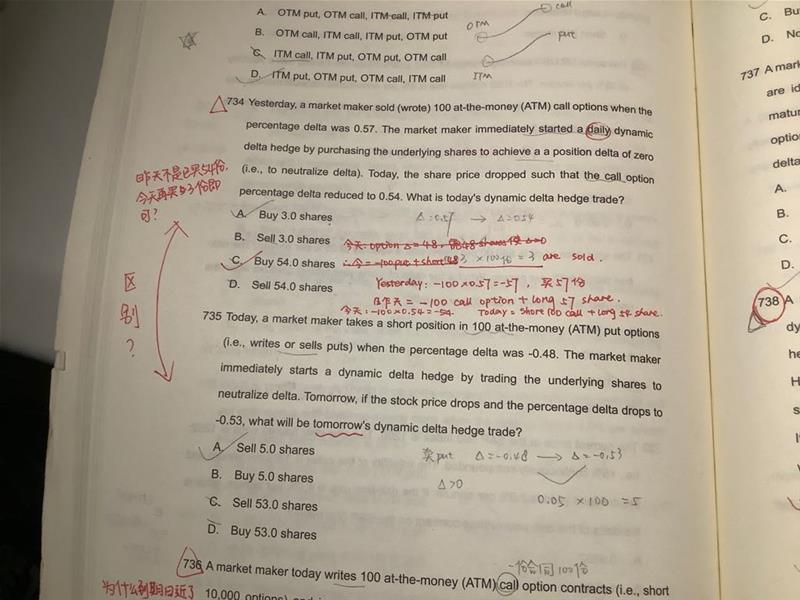 A. OTM put, OTM call, ITM call, ITM put
B. OTM call, ITM call, ITM put, OTM put
C. ITM call, ITM put, OTM put, OTM call
D. ITM put, OTM put, OTM call, ITM call
call
OTM
put
ITM
734 Yesterday, a market maker sold (wrote) 100 at-the-money (ATM) call options when the
percentage delta was 0.57. The market maker immediately started a daily dynamic
delta hedge by purchasing the underlying shares to achieve a a position delta of zero
(i.e., to neutralize delta). Today, the share price dropped such that the call option
percentage delta reduced to 0.54. What is today's dynamic delta hedge trade?
昨天不是已买54份,
今天再买 3份即
可?
A. Buy 3.0 shares
Δ=0.57 → Δ=0.54
B. Sell 3.0 shares
今天: option Δ = 48, 需48 shares 使 Δ=0
C. Buy 54.0 shares
∴今 = -100put + short 48
3 ×100份 = 3 are sold.
D. Sell 54.0 shares
Yesterday: -100×0.57=-57, 买57份
昨天 = -100 call option + long 57 share.
今天: -100×0.54=-54
Today = short 100 call + long 54 share.
区别?
735 Today, a market maker takes a short position in 100 at-the-money (ATM) put options
(i.e., writes or sells puts) when the percentage delta was -0.48. The market maker
immediately starts a dynamic delta hedge by trading the underlying shares to
neutralize delta. Tomorrow, if the stock price drops and the percentage delta drops to
-0.53, what will be tomorrow's dynamic delta hedge trade?
A. Sell 5.0 shares
卖put Δ=-0.48 → Δ=-0.53
B. Buy 5.0 shares
Δ>0
0.05 ×100 =5
C. Sell 53.0 shares
D. Buy 53.0 shares
一份合同100份
736 A market maker today writes 100 at-the-money (ATM) call option contracts (i.e., short
为什么到期日近了
10,000 options)
C. Bu
D. No
737 A mark
are id
matur
option
delta
A.
B.
C.
D.
738 A
dy
he
H
s